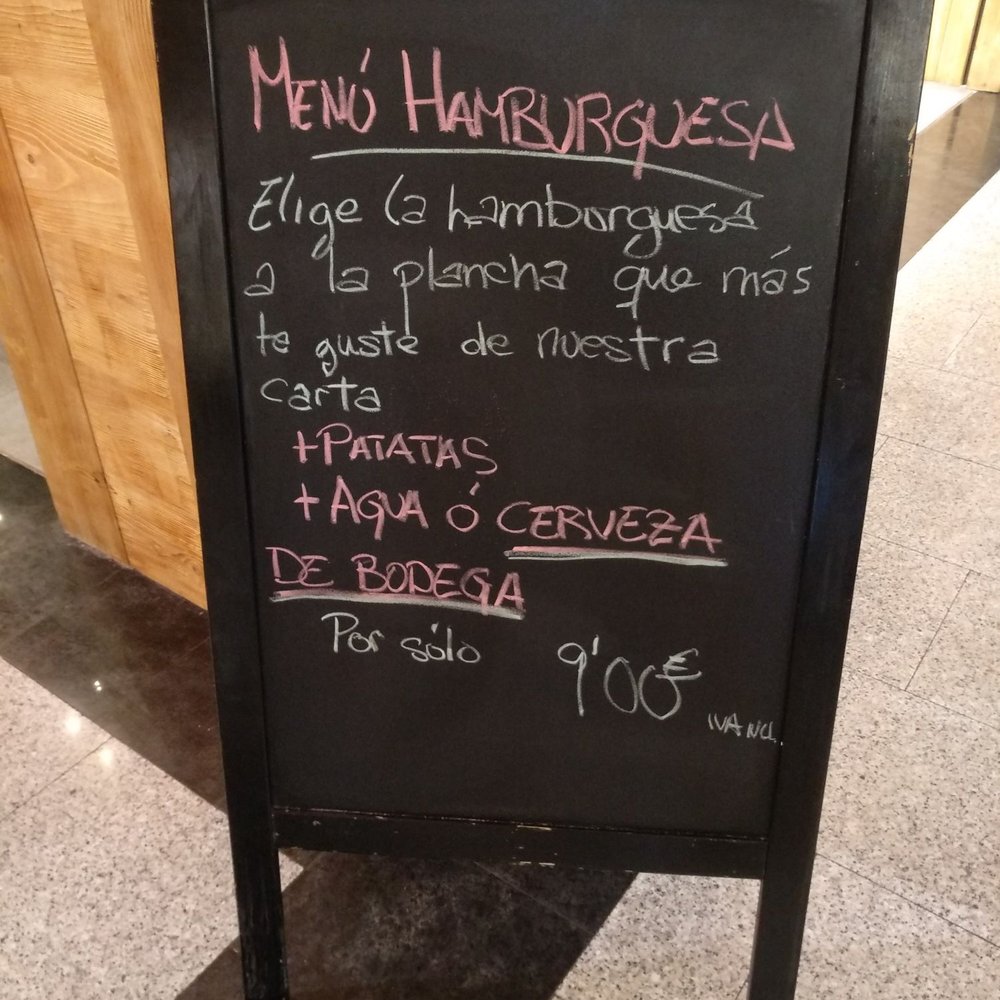 MENÚ HAMBURGUESA
Elige la hamburguesa
a la plancha que más
te guste de nuestra
carta
+PATATAS
+AGUA Ó CERVEZA
DE BODEGA
Por sólo 9'00€
IVA INCL.